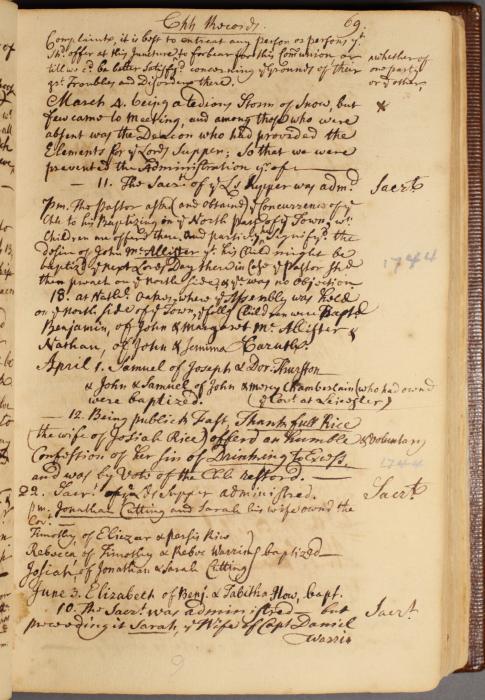 Chh Records. 69.
Complaints, it is best to entreat any person or persons yt
Shd offer at this Juncture to forbear for this Communion or
till we cd be better Satisfyd concerning ye Grounds of their
gt Troubles and Disorders there).
whether of
one party
or ye other
March 4. being a tedious Storm of Snow, but
few came to meeting, and among those who were
absent was the Deacon who had provided the
Elements for ye Lords Supper; So that we were
prevented the Administration yrof —
— 11. The Sacrt of ye Ls Supper was admd Sacrt
pm. The Pastor askd (and obtaind) ye Concurrence of ye
Chh to his Baptizing on ye North part of ye Town, wt
Children are offerd there, And particly Signifyd the
desire of John McAllister yt his Child might be
baptizd ye next Lords Day there in Case ye Pastor Shd
then preach on ye North Side, & yr was no Objection
1744
18. at Nathl Oakes, where ye Assembly was held
on ye North Side of ye Town, ye follg Children were Baptd
Benjamin, of John & Margaret McAllister &
Nathan, of John & Jemima
April 1. Samuel of Joseph & Dor. Thurston
& John & Samuel of John & mercy Chamberlain (who had ownd
were baptized. (ye Covt at Leicester)
— 12. Being publick Fast, Thankfull Rice
(the wife of Josiah Rice) offerd an Humble & Voluntary
Confession of her Sin of Drinking to Excess,
and was by Vote of the Chh restord. —
1744
22. Sacrt of ye Lds Supper administred. Sacrt
pm. Jonathan Cutting and Sarah his wife ownd the
Cov. —
Timothy, of Eliezer & Persis Rice
Rebecca of Timothy & Rebec Warrin baptized
Josiah, of Jonathan & Sarah Cutting
June 3. Elizabeth of Benj. & Tabitha How, bapt.
10. The Sacrt was administred — but Sacrt
preceeding it Sarah, ye Wife of Capt Daniel
Warrin
9